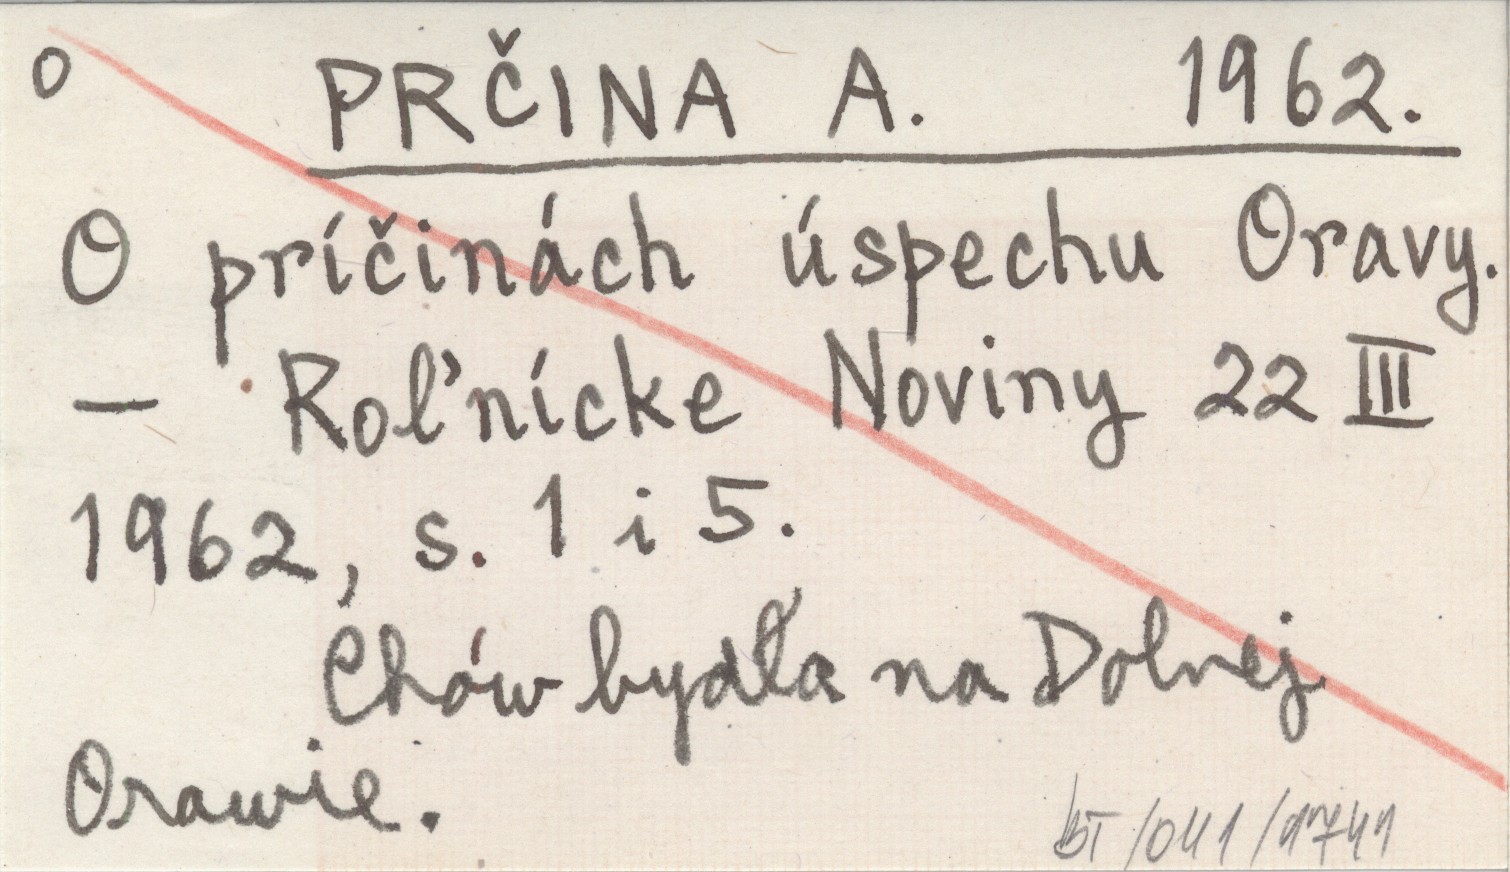 o PRČINA A. 1962.
O príčinách úspechu Oravy.
— Roľnícke Noviny 22 III
1962, s. 1 i 5.
Chów bydła na Dolnej
Orawie.
BT/041/1741